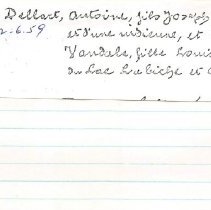 Dellart, Antoine, fils Joseph
2.6.59 et d'une indienne, et
Vandale, fille Louis
du Lac La Biche et